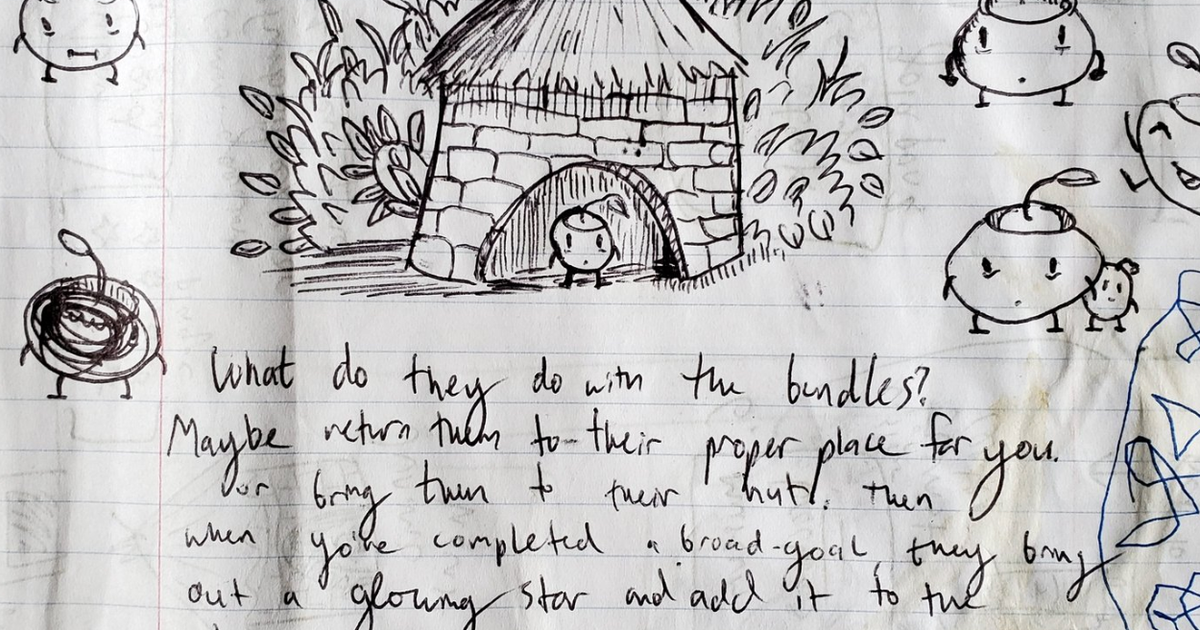 What do they do with the bundles?
Maybe return them to their proper place for you.
or bring them to their hut. Then
when you've completed a broad-goal, they bring
out a glowing star and add it to the